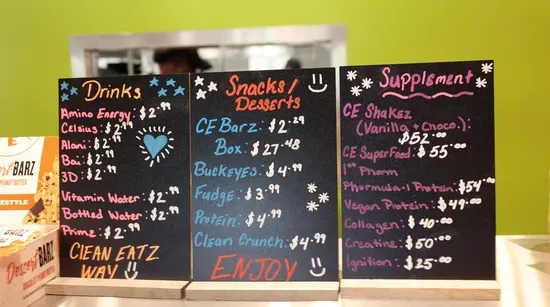 Drinks
Amino Energy: $2.99
Celsius: $2.99
Alani: $2.99
Bai: $2.99
3D: $2.99
Vitamin Water: $2.99
Bottled Water: $2.99
Prime: $2.99
CLEAN EATZ
WAY
Snacks/
Desserts
CE Barz: $2.29
Box: $27.48
Buckeyes: $4.99
Fudge: $3.99
Protein: $4.99
Clean Crunch: $4.99
ENJOY
Supplement
CE Shakez
(Vanilla + Choco.):
$52.00
CE SuperFood: $55.00
1st Pharm
Phormula-1 Protein: $54.00
Vegan Protein: $49.00
Collagen: $40.00
Creatine: $50.00
Ignition: $25.00
BARZ
PEANUT BUTTER
ESTYLE
Dessert BARZ